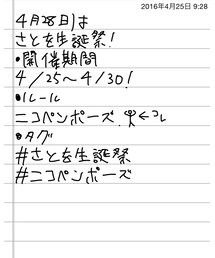 2016年4月25日 9:28
4月28日は
さとを生誕祭!
•開催期間
4/25〜4/30!
•ルール
ニコペンポーズ.←コレ
•タグ
#さとを生誕祭
#ニコペンポーズ